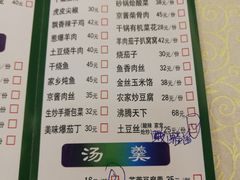 虎皮尖椒
飘香辣子鸡 42元/份
葱爆羊肉
土豆烧牛肉 40元/份
干烧鱼
家乡炖鱼 45元/份
京酱肉丝 35元/份
生炒手撕包菜 32元
美味爆茄丁 30元/份
砂锅烩酸菜
京酱柴骨肉
干锅有机菜花 28元/份
羊肉茄子扒窝窝 42元/份
烧茄子 30元/份
鱼香肉丝 32元/份
金丝玉米饼 38元/份
农家炒豆腐 28元/份
沸腾天下 68元
土豆丝 22元/份
汤 羹